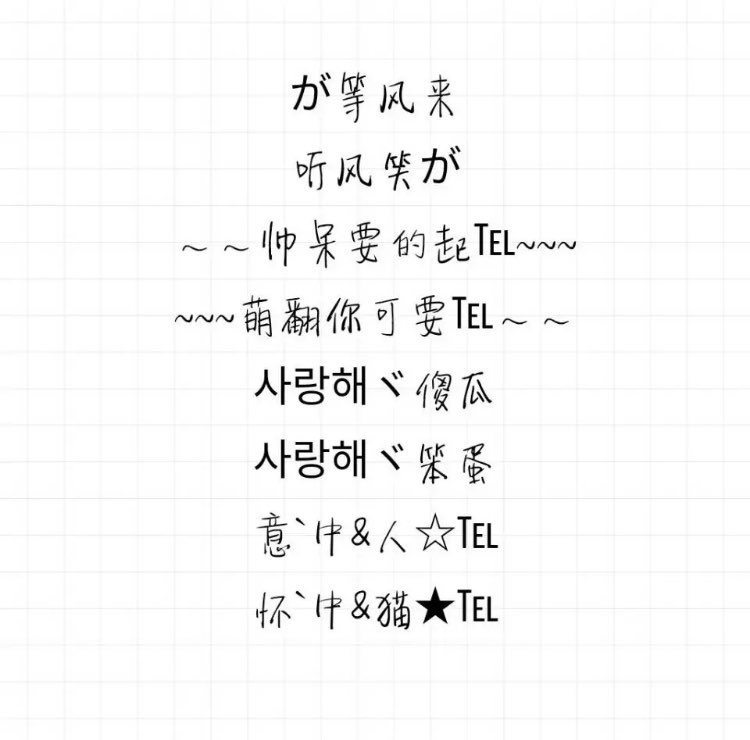 が等风来
听风笑が
～～帅呆要的起Tel~~~
~~~萌翻你可要Tel～～
사랑해ヾ傻瓜
사랑해ヾ笨蛋
意`中&人☆Tel
怀`中&猫★Tel